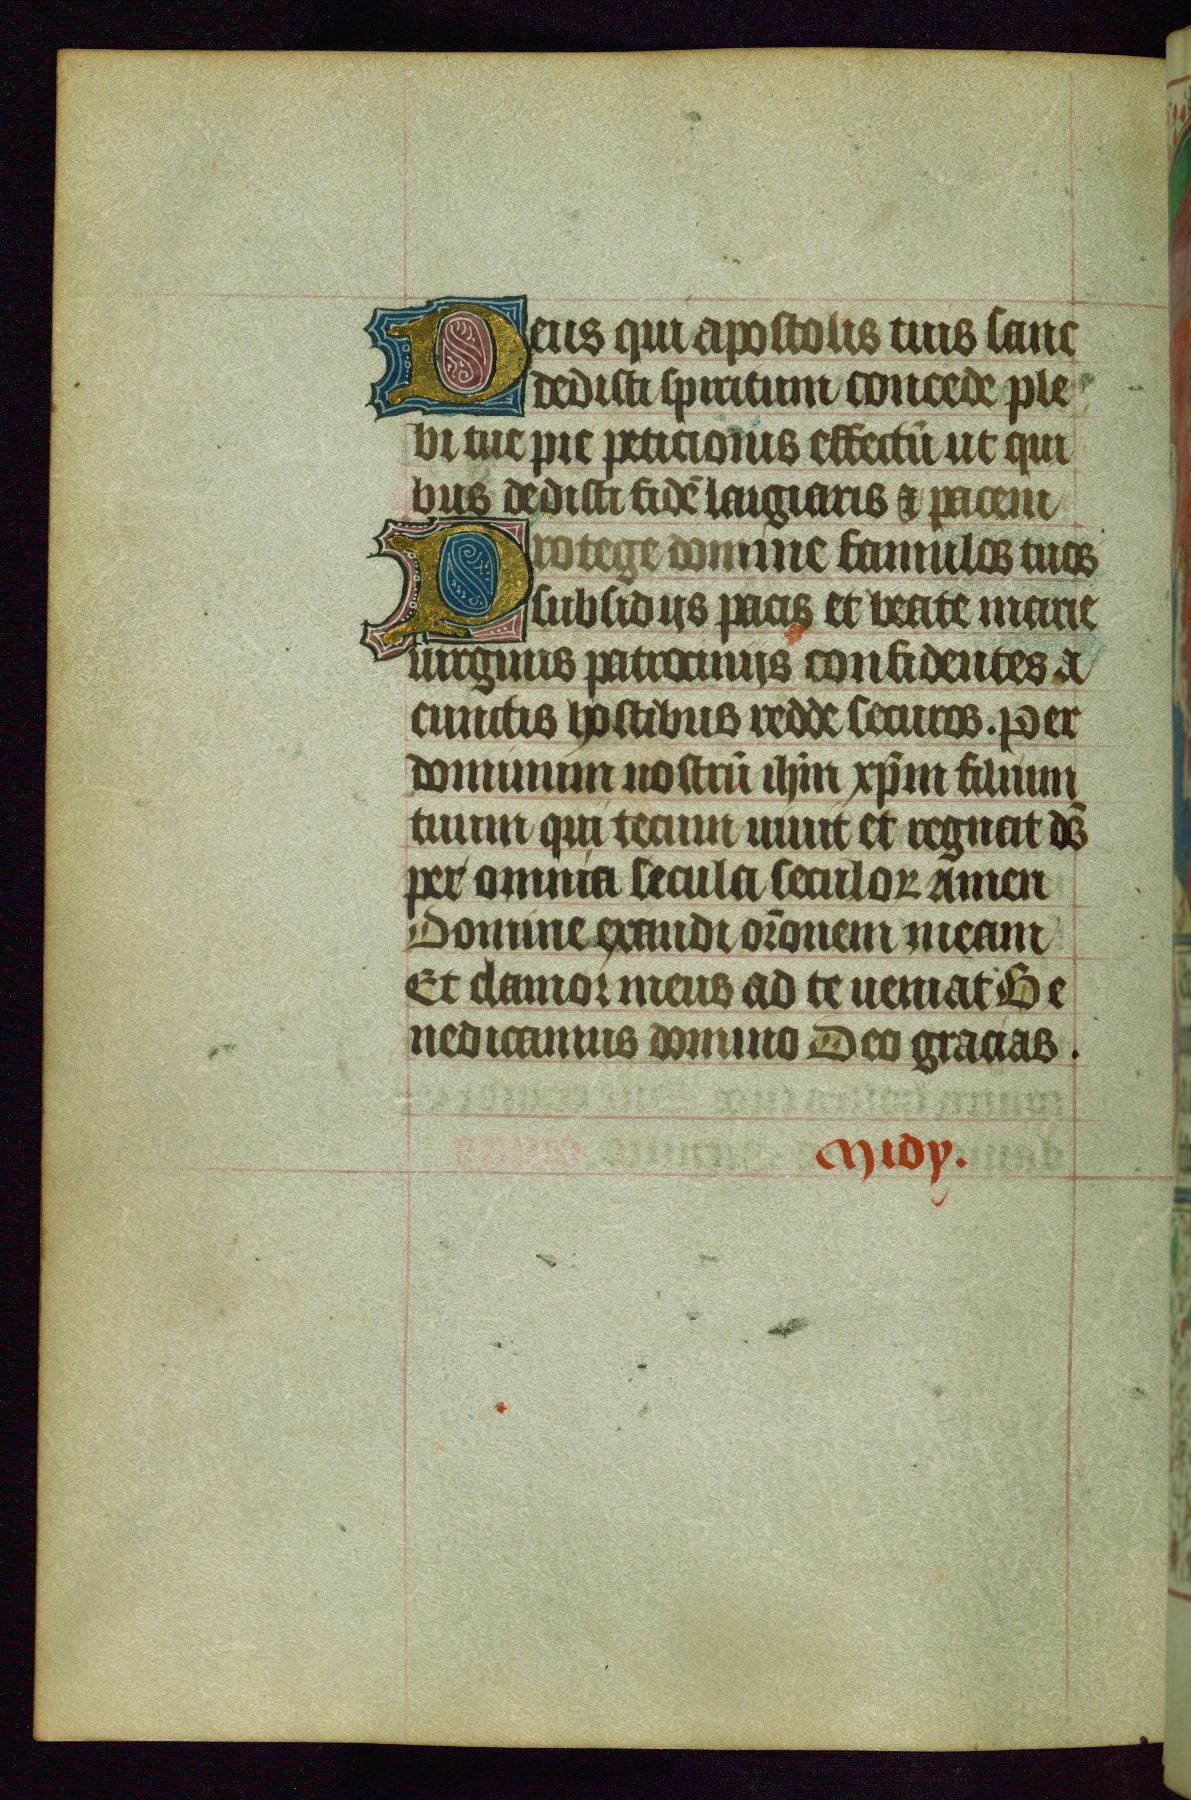 Deus qui apostolis tuis sanc
dedisti spiritum concede ple
bi tue pie peticionis effectũ ut qui
bus dedisti fidẽ largiaris & pacem
Protege domine famulos tuos
subsidijs pacis et beate marie
uirginis patrocinijs confidentes a
cunctis hostibus redde securos. Per
dominum nostrũ ihm̃ xpm̃ filium
tuum qui tecum uiuit et regnat ds̃
per omnia secula seculoꝝ amen
Domine exaudi or̃onem meam
Et clamor meus ad te ueniat Be
nedicamus domino Deo gracias .
Midy.